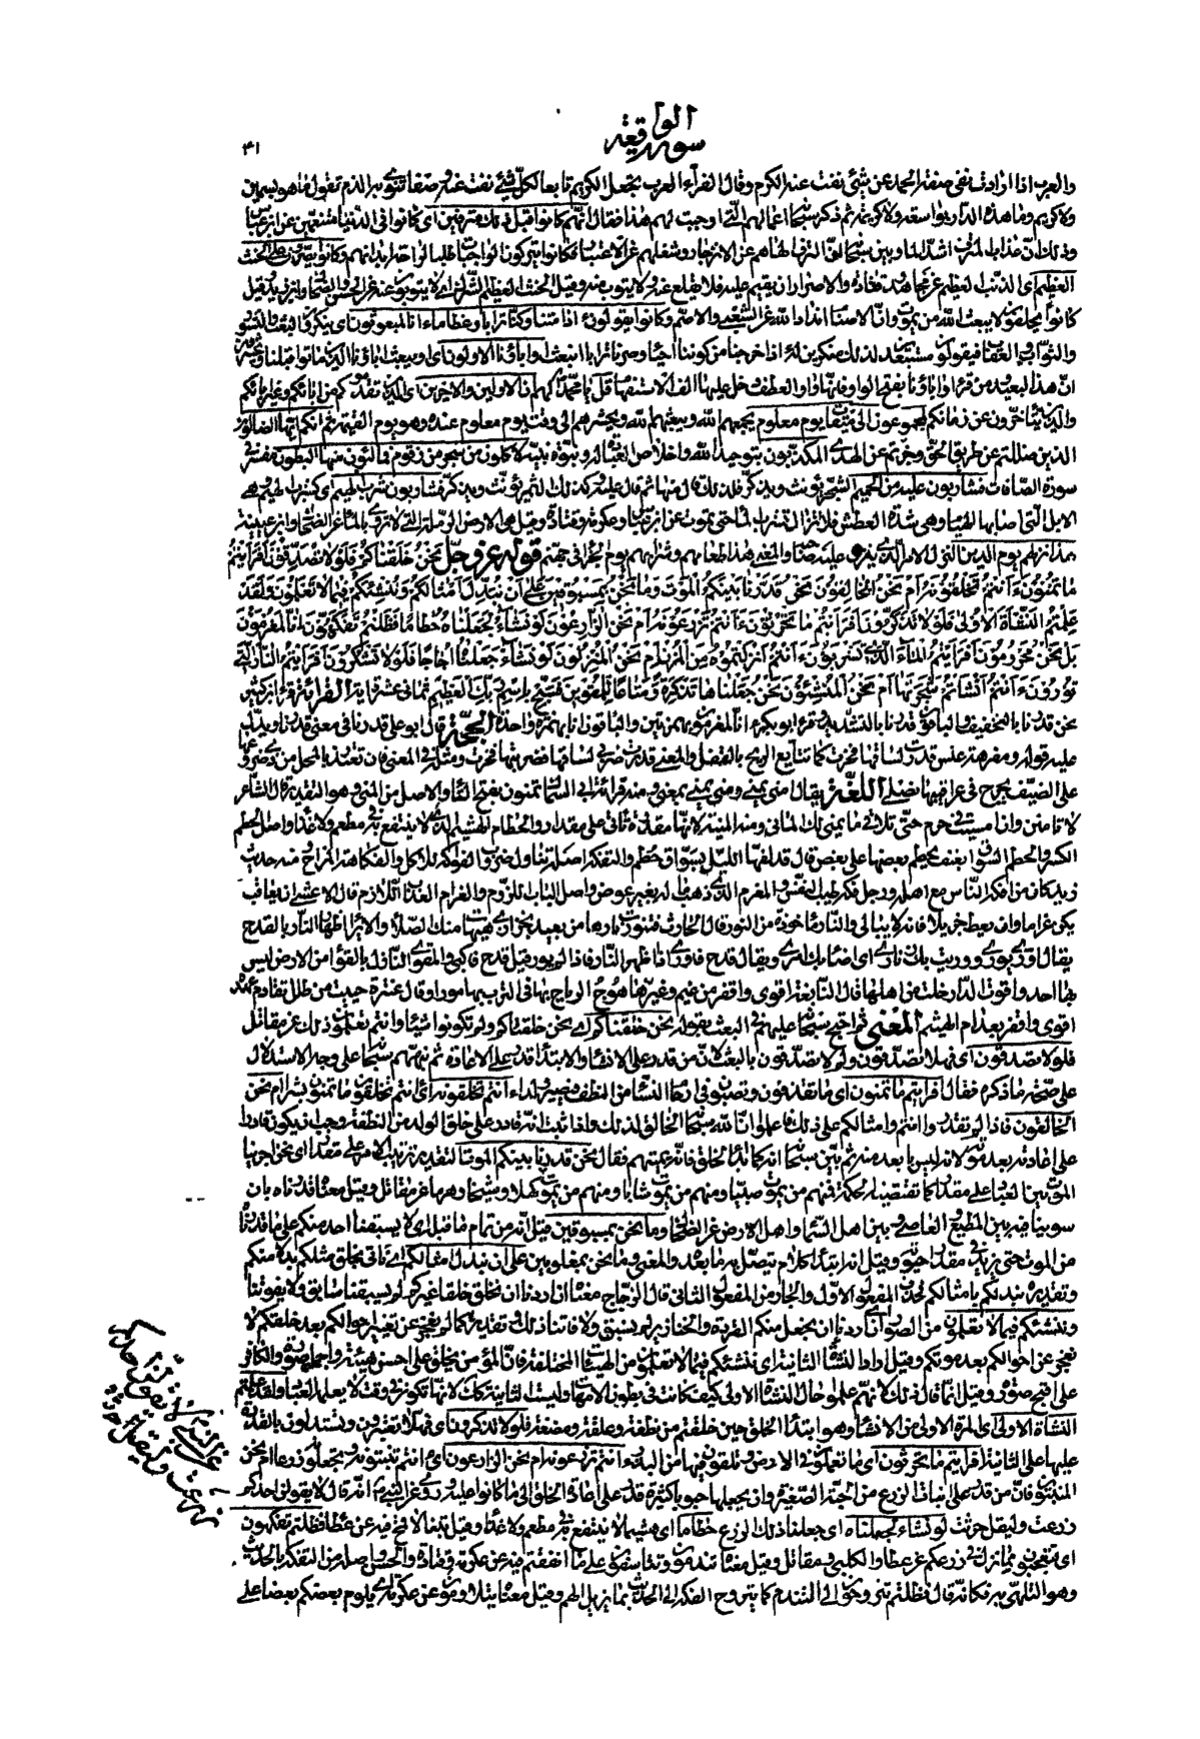 سورة الواقعة
٤١
والعرب اذا ارادت نفى صفة الحمد عن شئ نفت عنه الكرم وقال الفراء العرب تجعل الكريم تابعا لكل شئ نفت عنه وصفا تنوى به الذم تقول ما هو بسمين
ولا كريم وما هذه الدار بواسعة ولا كريمة ثم ذكر سبحانه اعمالهم التى اوجبت لهم هذا فقال انهم كانوا قبل ذلك مترفين اى كانوا فى الدنيا متنعمين عن ابن عباس
وذلك ان عذاب المترف اشد الما وبين سبحانه ان الترف الهاهم عن الانزجار وشغلهم عن الاعتبار فكانوا يتركون الواجبات طلبا لراحة ابدانهم وكانوا يصرون على الحنث
العظيم اى الذنب العظيم عن مجاهد وقتادة والاصرار ان يقيم عليه فلا يقلع عنه ولا يتوب منه وقيل الحنث العظيم الشرك اى لا يتوبون عنه عن الحسن والضحاك وابن زيد وقيل
كانوا يحلفون لا يبعث الله من يموت وان الاصنام انداد الله عن الشعبى والاصم وكانوا يقولون ءاذا متنا وكنا ترابا وعظاما ءانا لمبعوثون اى ينكرون البعث والنشور
والثواب والعقاب فيقولون مستبعدين لذلك منكرين له ءاذا خرجنا من كوننا احياء وصرنا ترابا انبعث او اباؤنا الاولون اى اويبعث اباؤنا الذين ماتوا قبلنا ويحشرون
ان هذا لبعيد ومن قرأ او اباؤنا بفتح الواو فانها واو العطف دخل عليها الف الاستفهام قل يا محمد لهم ان الاولين والاخرين اى الذين تقدموكم من ابائكم وغير ابائكم
والذين يتأخرون عن زمانكم لمجموعون الى ميقات يوم معلوم يجمعهم الله ويبعثهم ويحشرهم الى وقت يوم معلوم عنده وهو يوم القيمة ثم انكم ايها الضالون
الذين ضللتم عن طريق الحق وجزتم عن الهدى المكذبون بتوحيد الله واخلاص العبادة له ونبوة نبيه لاكلون من شجر من زقوم فمالئون منها البطون مفسر فى
سورة الصافات فشاربون عليه من الحميم الشجر يؤنث ويذكر فلذلك قال منها ثم قال عليه وكذلك الثمر يؤنث ويذكر فشاربون شرب الهيم اى كشرب الهيم وهى
الابل التى اصابها الهيام وهى شدة العطش فلا تزال تشرب الماء حتى تموت عن ابن عباس وعكرمة وقتادة وقيل هى الارض الرملة التى لا تروى بالماء عن الضحاك وابن عيينة
هذا نزلهم يوم الدين النزل الامر الذى ينزل عليه صاحبه والمعنى هذا طعامهم وشرابهم يوم الجزاء فى جهنم قوله عز وجل نَحْنُ خَلَقْنَاكُمْ فَلَوْلَا تُصَدِّقُونَ أَفَرَأَيْتُمْ
مَا تُمْنُونَ ءَأَنْتُمْ تَخْلُقُونَهُ أَمْ نَحْنُ الْخَالِقُونَ نَحْنُ قَدَّرْنَا بَيْنَكُمُ الْمَوْتَ وَمَا نَحْنُ بِمَسْبُوقِينَ عَلَى أَنْ نُبَدِّلَ أَمْثَالَكُمْ وَنُنْشِئَكُمْ فِيمَا لَا تَعْلَمُونَ وَلَقَدْ
عَلِمْتُمُ النَّشْأَةَ الْأُولَى فَلَوْلَا تَذَكَّرُونَ أَفَرَأَيْتُمْ مَا تَحْرُثُونَ ءَأَنْتُمْ تَزْرَعُونَهُ أَمْ نَحْنُ الزَّارِعُونَ لَوْ نَشَاءُ لَجَعَلْنَاهُ حُطَامًا فَظَلْتُمْ تَفَكَّهُونَ إِنَّا لَمُغْرَمُونَ
بَلْ نَحْنُ مَحْرُومُونَ أَفَرَأَيْتُمُ الْمَاءَ الَّذِي تَشْرَبُونَ ءَأَنْتُمْ أَنْزَلْتُمُوهُ مِنَ الْمُزْنِ أَمْ نَحْنُ الْمُنْزِلُونَ لَوْ نَشَاءُ جَعَلْنَاهُ أُجَاجًا فَلَوْلَا تَشْكُرُونَ أَفَرَأَيْتُمُ النَّارَ الَّتِي
تُورُونَ ءَأَنْتُمْ أَنْشَأْتُمْ شَجَرَتَهَا أَمْ نَحْنُ الْمُنْشِئُونَ نَحْنُ جَعَلْنَاهَا تَذْكِرَةً وَمَتَاعًا لِلْمُقْوِينَ فَسَبِّحْ بِاسْمِ رَبِّكَ الْعَظِيمِ ثمانى عشرة اية القراءة قرء ابن كثير
نحن قدرنا بالتخفيف والباقون قدرنا بالتشديد وقرء ابو بكر ءانا لمغرمون بهمزتين والباقون انا بهمزة واحدة الحجة قال ابو على قدرنا فى معنى قدرنا ويدل
على الضيف يجرح فى عراقيبها نصلى اللغة يقال امنى يمنى ومنى يمنى بمعنى ومنه قراءة ابى السمال تمنون بفتح التاء والاصل من المنى وهو التقدير قال الشاعر
لا تأمنن وان امسيت فى حرم حتى تلاقى ما يمنى لك المانى ومنه المنية لانها مقدرة تأتى على مقدار والحطام الهشيم الذى لا ينتفع به فى مطعم ولا غذاء واصل الحطم
الكسر والحطم السواق بعنف يحطم بعضها على بعض قال قد لفها الليل بسواق حطم والتفكه اصله تناول ضروب الفواكه للاكل والفكاهة المزاح ومنه حديث
زيد كان من افكه الناس مع اهله ورجل فكه طيب النفس والمغرم الذى ذهب ماله بغير عوض واصل الباب اللزوم والغرام العذاب اللازم قال الاعشى ان يعاقب
يكن غراما وان يعط جزيلا فانه لا يبالى والنار مأخوذة من النور قال الحارث فتنورت نارها من بعيد بخزازى هيهات منك الصلاء والايراء اظهار النار بالقدح
يقال ورى يورى ووريت بك نارى اى اضاء بك امرى ويقال قدح فاورى اذا ظهر النار فاذا لم يور قيل قدح فاكبى والمقوى النازل بالقواء من الارض ليس
بها احد واقوت الدار خلت من اهلها قال النابغة اقوى واقفر من نعم وغيرها هوج الرياح بهابى الترب موار وقال عنترة حييت من طلل تقادم عهده
اقوى واقفر بعد ام الهيثم المعنى ثم احتج سبحانه عليهم فى البعث بقوله نحن خلقناكم اى نحن خلقناكم ولم تكونوا شيئا وانتم تعلمون ذلك عن مقاتل
فلولا تصدقون اى فهلا تصدقون ولم لا تصدقون بالبعث لان من قدر على الانشاء والابتداء قدر على الاعادة ثم نبههم سبحانه على وجه الاستدلال
على صحة ما ذكره فقال افرايتم ما تمنون اى ما تقذفون وتصبون فى ارحام النساء من النطف فيصير ولدا ءانتم تخلقونه اى ءانتم تخلقون ما تمنون بشرا ام نحن
الخالقون فاذا لم تقدروا انتم وامثالكم على ذلك فاعلموا ان الله سبحانه الخالق لذلك واذا ثبت انه قادر على خلق الولد من النطفة وجب ان يكون قادرا
على اعادته بعد موته لانه ليس بابعد منه ثم بين سبحانه انه كما بدأ الخلق فانه يميتهم فقال نحن قدرنا بينكم الموت التقدير ترتيب الامر على مقدار اى نحن اجرينا
الموت بين العباد على مقدار كما تقتضيه الحكمة فمنهم من يموت صبيا ومنهم من يموت شابا ومنهم من يموت كهلا وشيخا وهرما عن مقاتل وقيل معناه قدرناه بان
سوينا فيه بين المطيع والعاصى وبين اهل السماء واهل الارض عن الضحاك وما نحن بمسبوقين قيل انه من تمام ما قبله اى لا يسبقنا احد منكم على ما قدرناه
من الموت حتى يزيد فى مقدار حيوته وقيل انه ابتداء كلام يتصل به ما بعده والمعنى وما نحن بمغلوبين على ان نبدل امثالكم اى نأتى بخلق مثلكم بدلا منكم
وتقديره نبدلكم بامثالكم فحذف المفعول الاول والجار من المفعول الثانى قال الزجاج معناه ان اردنا ان نخلق خلقا غيركم لم يسبقنا سابق ولا يفوتنا
وننشئكم فيما لا تعلمون من الصور اى ان اردنا ان نجعل منكم القردة والخنازير لم نسبق ولا فاتنا ذلك وتقديره كما لم نعجز عن تغيير احوالكم بعد خلقكم لا
نعجز عن احوالكم بعد موتكم وقيل اراد النشأة الثانية اى ننشئكم فيما لا تعلمون من الهيئات المختلفة فان المؤمن يخلق على احسن هيئة واجمل صورة والكافر
على اقبح صورة وقيل انما قال ذلك لانهم علموا حال النشأة الاولى كيف كانت فى بطون الامهات وليست الثانية كذلك لانها تكون فى وقت لا يعلمه العباد ولقد علمتم
النشأة الاولى اى المرة الاولى من الانشاء وهو ابتداء الخلق حين خلقتم من نطفة وعلقة ومضغة فلولا تذكرون اى فهلا تعتبرون وتستدلون بالقدرة
عليها على الثانية افرايتم ما تحرثون اى ما تعملون فى الارض وتلقون فيها من البذر ءانتم تزرعونه ام نحن الزارعون اى ءانتم تنبتونه وتجعلونه زرعا ام نحن
المنبتون فان من قدر على انبات الزرع من الحبة الصغيرة وان يجعلها حبوبا كثيرة قدر على اعادة الخلق الى ما كانوا عليه وروى عن النبى انه قال لا يقولن احدكم
زرعت وليقل حرثت لو نشاء لجعلناه اى جعلنا ذلك الزرع حطاما اى هشيما لا ينتفع به فى مطعم ولا غذاء وقيل تبنا لا قمح فيه عن عطاء فظلتم تفكهون
اى تعجبون مما نزل بكم فى زرعكم عن عطاء والكلبى ومقاتل وقيل معناه تندمون وتتأسفون على ما انفقتم فيه عن عكرمة وقتادة والحسن واصله من التفكه بالحديث
وهو التلهى به فكانه قال فظلتم تتروحون الى التندم كما يتروح الفكه الى الحديث بما يزيل الهم وقيل معناه يتلاومون عن عكرمة اى يلوم بعضكم بعضا على